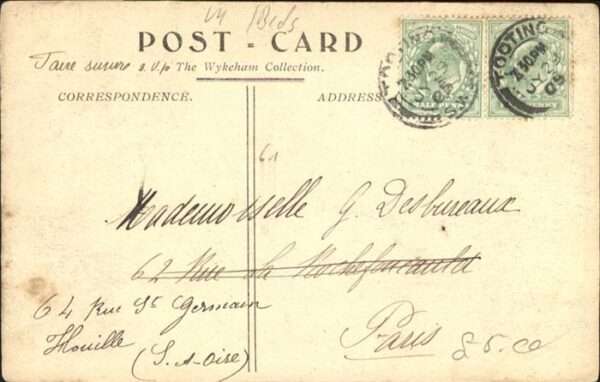 Beds
POST - CARD
Faire suivre s.v.p The Wykeham Collection.
CORRESPONDENCE. ADDRESS
TOOTING
7.30PM
JY 2
09
HALF PENNY
61
Mademoiselle G. Desbureaux
62 Rue La Rochefoucauld
64 Rue St Germain
Houille
(S. et Oise)
Paris
85.co